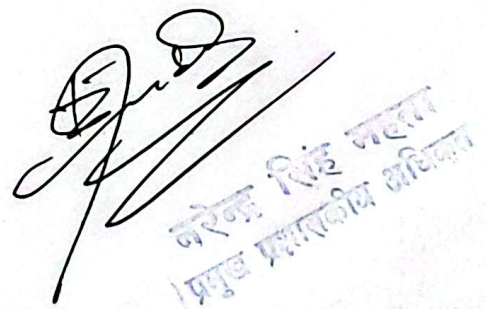 नरेन्द्र सिंह महरा
प्रमुख प्रशासकीय अधिकृत